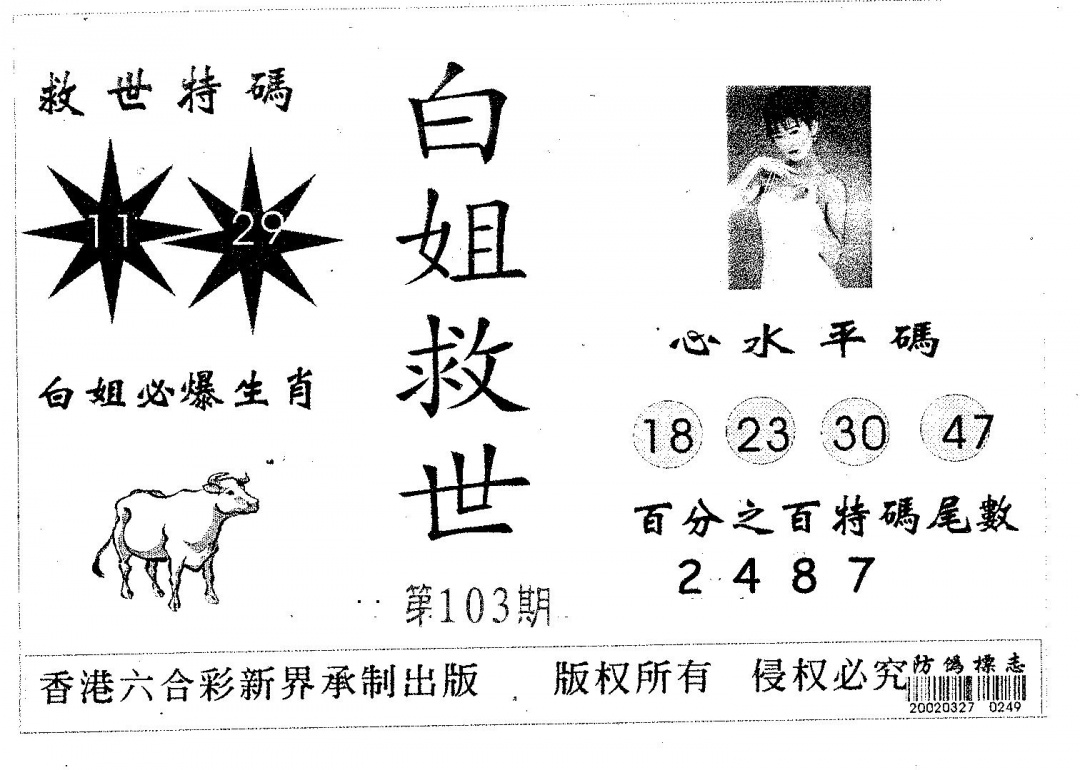 救世特碼
11 29
白姐必爆生肖
白姐救世
第103期
心水平碼
18 23 30 47
百分之百特碼尾數
2 4 8 7
香港六合彩新界承制出版 版权所有 侵权必究
防偽標志
20020327 0249